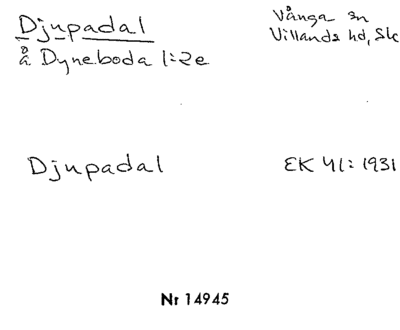 Djupadal
å Dyneboda 1:2e
Vånga sn
Villands hd, Sk
Djupadal
EK 41: 1931
Nr 14945